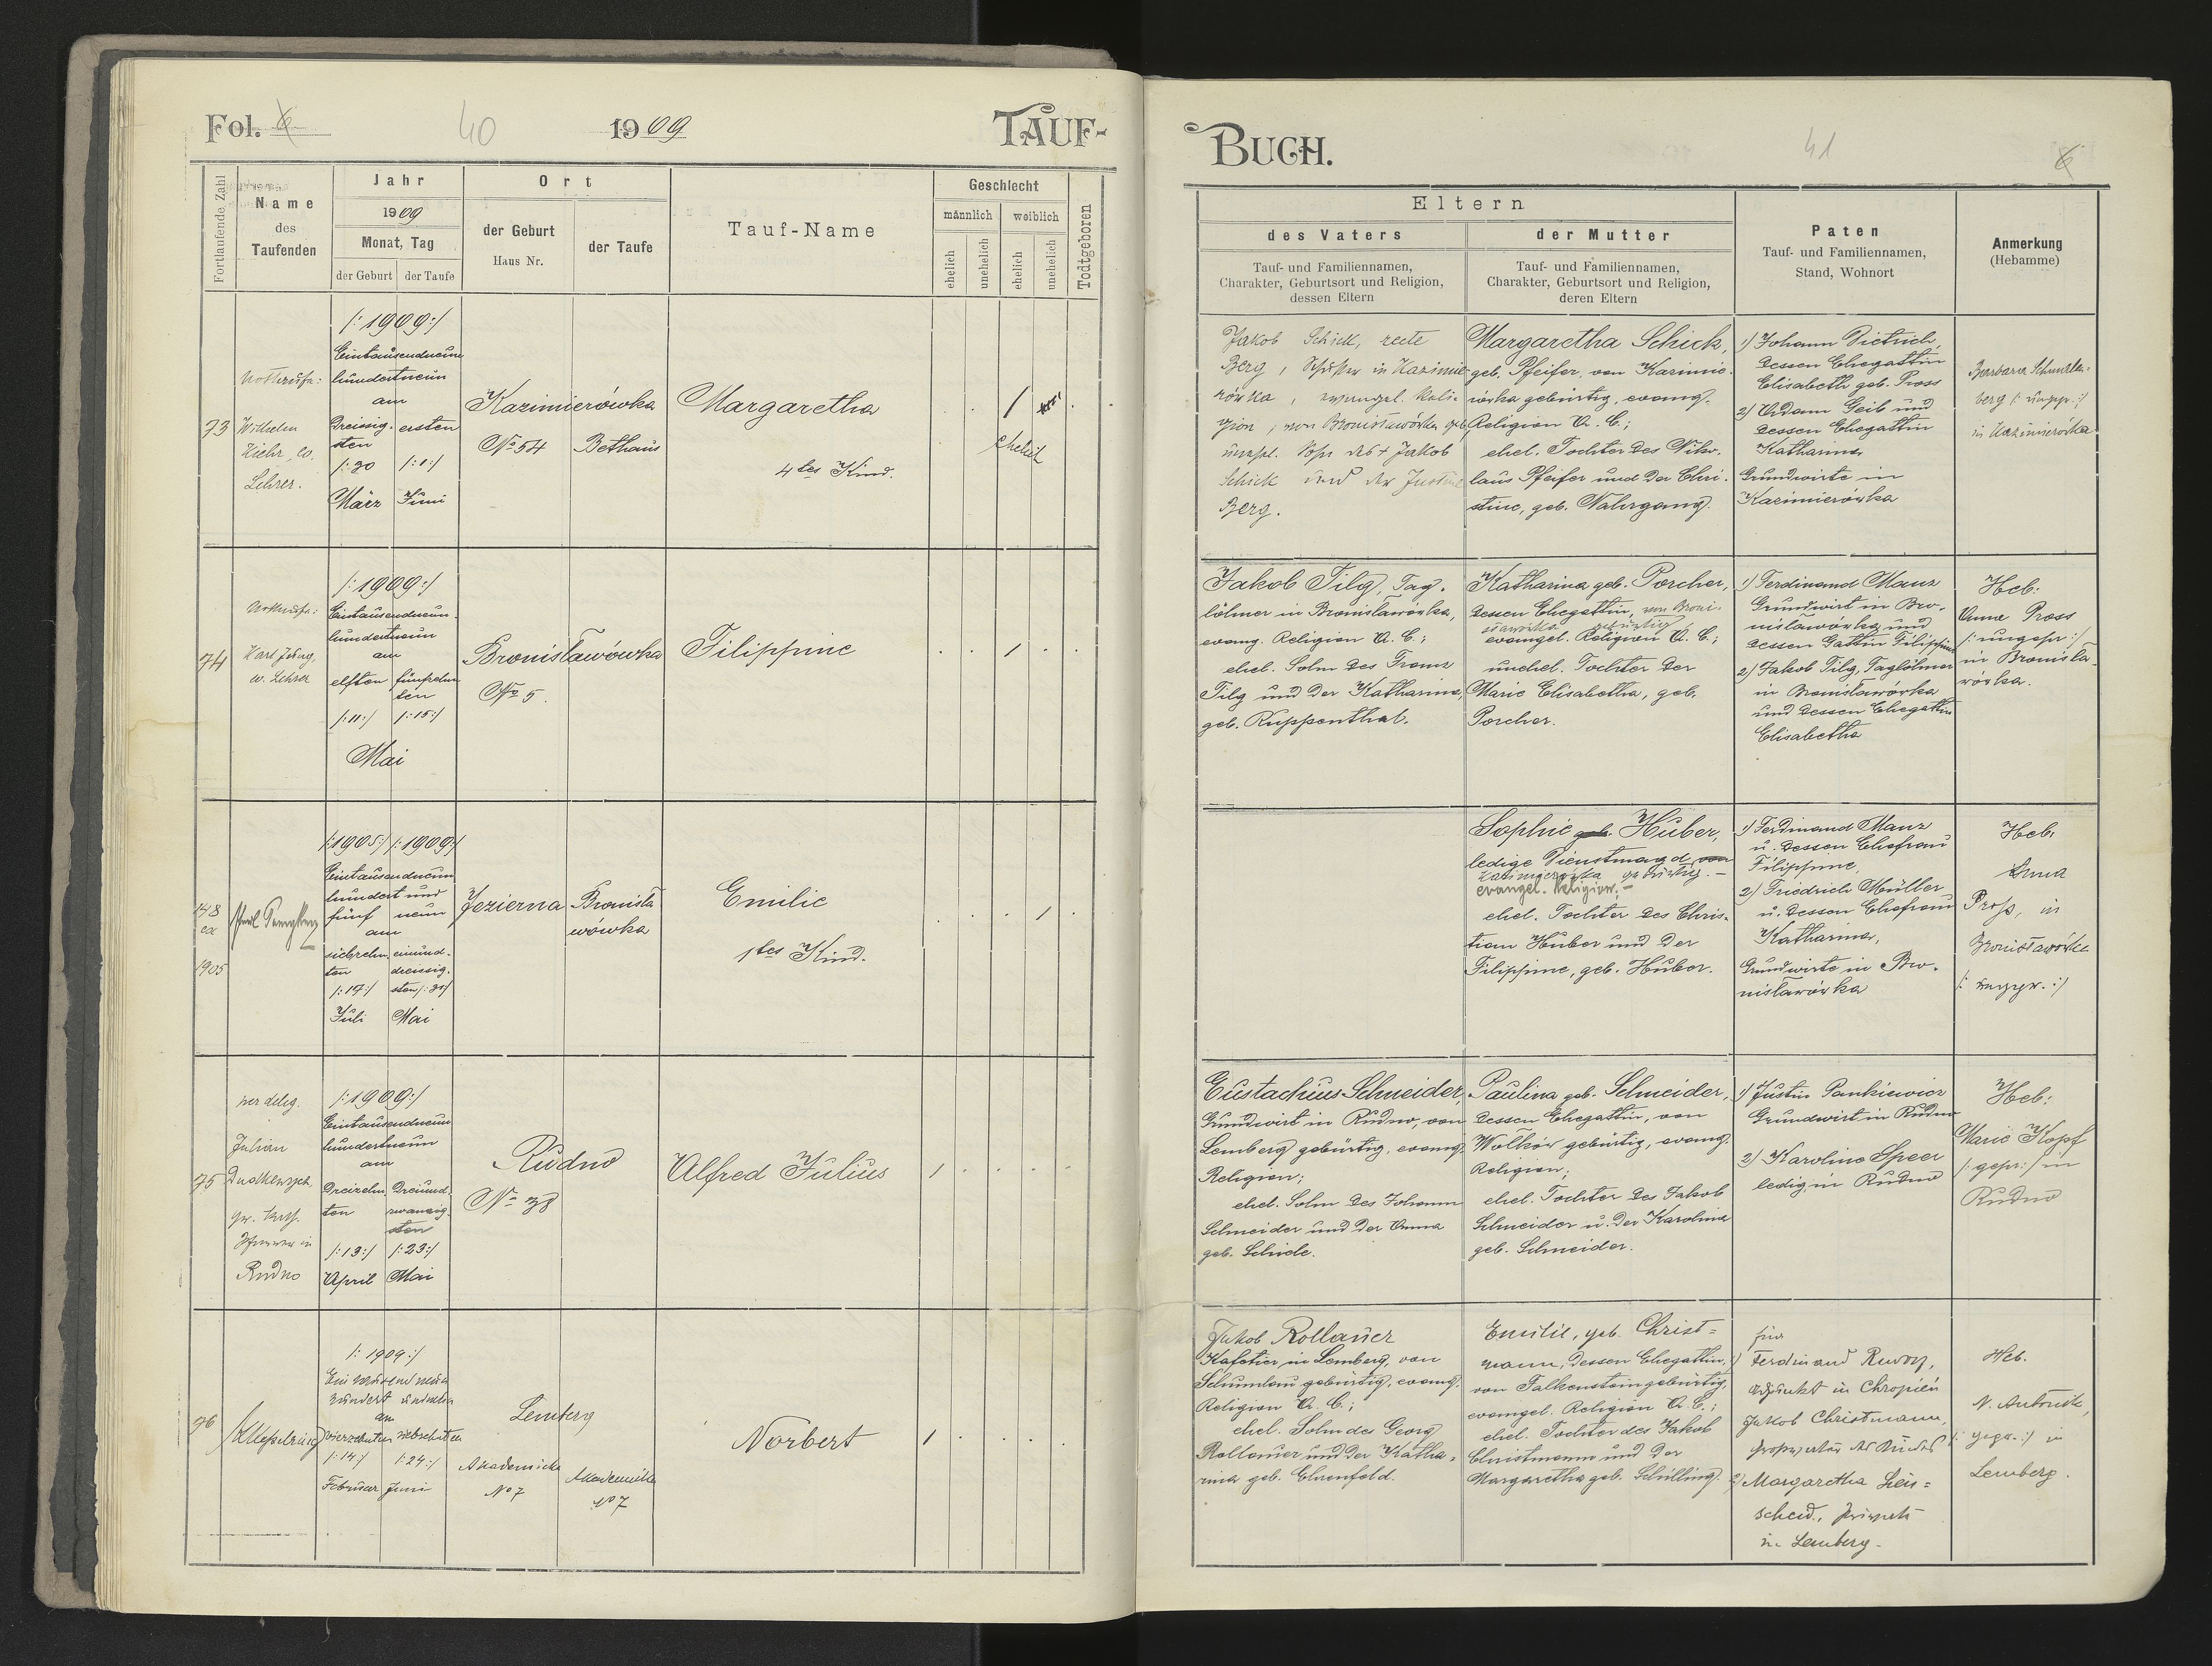 Fol. 6
40
1909
TAUF-
Fortlaufende Zahl
Name
des
Taufenden
Jahr
1909
Monat, Tag
der Geburt
der Taufe
Ort
der Geburt
Haus Nr.
der Taufe
Tauf-Name
Geschlecht
männlich
weiblich
ehelich
unehelich
ehelich
unehelich
Todtgeboren
73
Nothtaufe:
Wilhelm
Ziehr, ev.
Lehrer.
/: 1909 :/
Eintausendneun
hundertneun
am
Dreissig-
sten
/: 30
März
ersten
/: 1 :/
Juni
Kazimierówka
No 54
Bethaus
Margaretha
4tes Kind.
/
ehelich
74
Nottaufe:
Karl Jung,
ev. Lehrer
/: 1909 :/
Eintausendneun
hundertneun
am
elften
/: 11 :/
fünfzehn
ten
/: 15 :/
Mai
Bronisławówka
No 5.
Filippine
/
148
ex
1905
/: 1905 :/ /: 1909 :/
Eintausendneun
hundert und
fünf neun
am
siebzehn-
ten
/: 17 :/
Juli
einund-
dreissig-
sten /: 31 :/
Mai
Jezierna
Bronisła
wówka
Emilie
1tes Kind.
/
75
per deleg.
Julian
gr. kath.
Pfarrer in
Rudno
/: 1909 :/
Eintausendneun
hundertneun
am
Dreizehn
ten
/: 13 :/
April
Dreiund-
zwanzig-
sten
/: 23 :/
Mai
Rudno
No 38
Alfred Julius
1
76
/: 1909 :/
Eintausendneun
hundert undneun
am
vierzehnten
/: 14 :/
Februar
/: 24 :/
Juni
Lemberg
Akademicka
No 7
Akademicka
No 7
Norbert
1
BUCH.
41
6
Eltern
des Vaters
Tauf- und Familiennamen,
Charakter, Geburtsort und Religion,
dessen Eltern
der Mutter
Tauf- und Familiennamen,
Charakter, Geburtsort und Religion,
deren Eltern
Paten
Tauf- und Familiennamen,
Stand, Wohnort
Anmerkung
(Hebamme)
Jakob Schick, recte
Berg, Schuster in Kazimie-
rówka, evangel. Reli-
gion, von Bronisławówka geb.
unehel. Sohn des + Jakob
Schick und der Justine
Berg.
Margaretha Schick,
geb. Pfeifer, von Kazimie-
rówka gebürtig, evang.
Religion A. C.;
ehel. Tochter des Niko-
laus Pfeifer und der Chri-
stine, geb. Nahrgang.
1) Johann Dietrich,
dessen Ehegattin
Elisabeth geb. Pross
2) Adam Geib und
dessen Ehegattin
Katharina
Grundwirte in
Kazimierówka
Barbara Schmelzen-
berg /: ungepr. :/
in Kazimierówka
Jakob Filg, Tag-
löhner in Bronisławówka,
evang. Religion A. C.;
ehel. Sohn des Franz
Filg und der Katharina,
geb. Ruppenthal.
Katharina geb. Porcher,
dessen Ehegattin, von Broni-
sławówka gebürtig
evangel. Religion A. C.;
unehel. Tochter der
Marie Elisabetha, geb.
Porcher.
1) Ferdinand Manz
Grundwirt in Bro-
nisławówka und
dessen Gattin Filippine
2) Jakob Filg, Taglöhner
in Bronisławówka
und dessen Ehegattin
Elisabetha
Heb:
Anna Pross
/: ungepr. :/
in Bronisła-
wówka.
Sophie geb. Huber,
ledige Dienstmagd von
Kazimierówka gebürtig. -
evangel. Religion; -
ehel. Tochter des Chris-
tian Huber und der
Filippine, geb. Huber.
1) Ferdinand Manz
u. dessen Ehefrau
Filippine,
2) Friedrich Müller
u. dessen Ehefrau
Katharina,
Grundwirte in Bro-
nisławówka
Heb.
Anna
Pross, in
Bronisławówka
/: ungepr. :/
Eustachius Schneider,
Grundwirt in Rudno, von
Lemberg gebürtig, evang.
Religion;
ehel. Sohn des Johann
Schneider und der Anna
geb. Schiele.
Paulina geb. Schneider,
dessen Ehegattin, von
Wolków gebürtig, evang.
Religion;
ehel. Tochter des Jakob
Schneider u. der Karolina
geb. Schneider.
1) Justin Pankiewicz
Grundwirt in Rudno
2) Karoline Speer
ledig in Rudno
Heb:
Marie Kopf
/: gepr. :/ in
Rudno
Jakob Rollauer
Kafetier in Lemberg, von
Schumlau gebürtig, evang.
Religion A. C.;
ehel. Sohn des Georg
Rollauer und der Katha-
rina geb. Ehrenfeld.
Emilie, geb. Christ-
mann, dessen Ehegattin,
von Falkenstein gebürtig,
evangel. Religion A. C.;
ehel. Tochter des Jakob
Christmann und der
Margaretha geb. Schilling.
für
1) Ferdinand
Adjunkt in
Jakob Christmann,
Grossvater des Kindes
2) Margaretha
in Lemberg.
Heb.
/: gepr. :/ in
Lemberg.